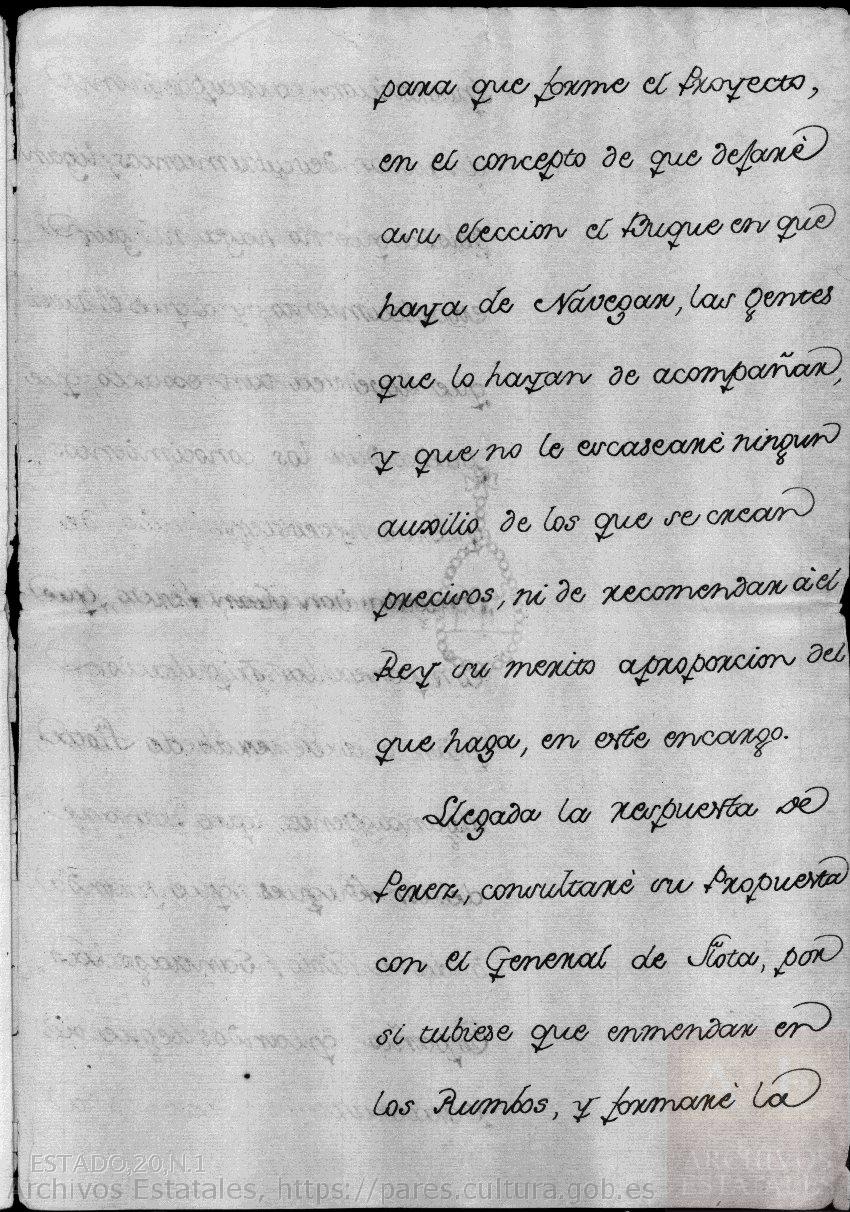 para que forme el Proyecto,
en el concepto de que dejarè
asu eleccion el Buque en que
haya de Návegar, las gentes
que lo hayan de acompañar,
y que no le escasearè ningun
auxilio de los que se crean
precisos, ni de recomendar à el
Rey su merito aproporcion del
que haga, en este encargo.
Llegada la respuesta de
Perez, consultarè su Propuesta
con el General de Flota, por
si tubiese que enmendar en
los Rumbos, y formarè la
ESTADO,20,N.1
Archivos Estatales, https://pares.cultura.gob.es